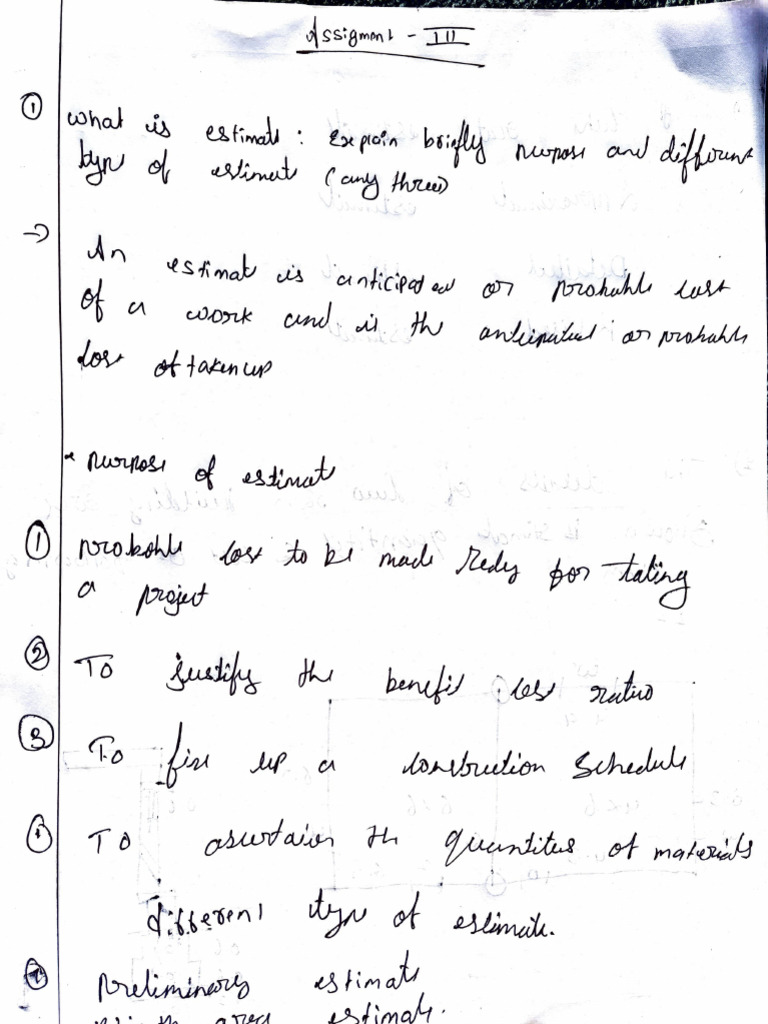 Assigment - III
① what is estimate : Explain briefly purpose and different
type of estimate (any three)
→ An estimate is anticipated or probable cost
of a work and is the anticipated or probable
cost of taken up
* purpose of estimate
① probable cost to be made Redy for taking
a project
② To justify the benefit cost ratio
③ To fix up a construction schedule
To ascertain the quantites of materials
different type of estimate.
preliminary estimate
area estimate.